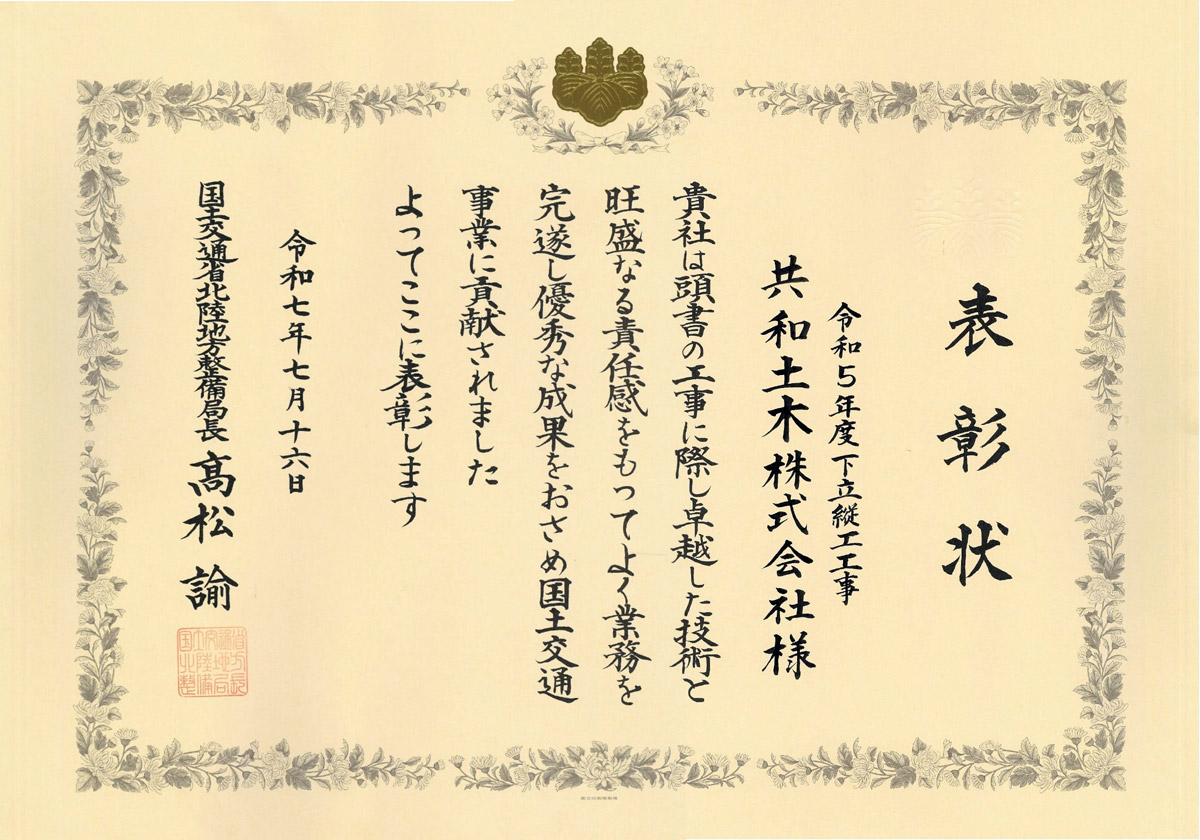 表彰状
令和5年度下立縦工工事
共和土木株式会社様
貴社は頭書の工事に際し卓越した技術と
旺盛なる責任感をもってよく業務を
完遂し優秀な成果をおさめ国土交通
事業に貢献されました
よってここに表彰します
令和七年七月十六日
国土交通省北陸地方整備局長 髙松 諭